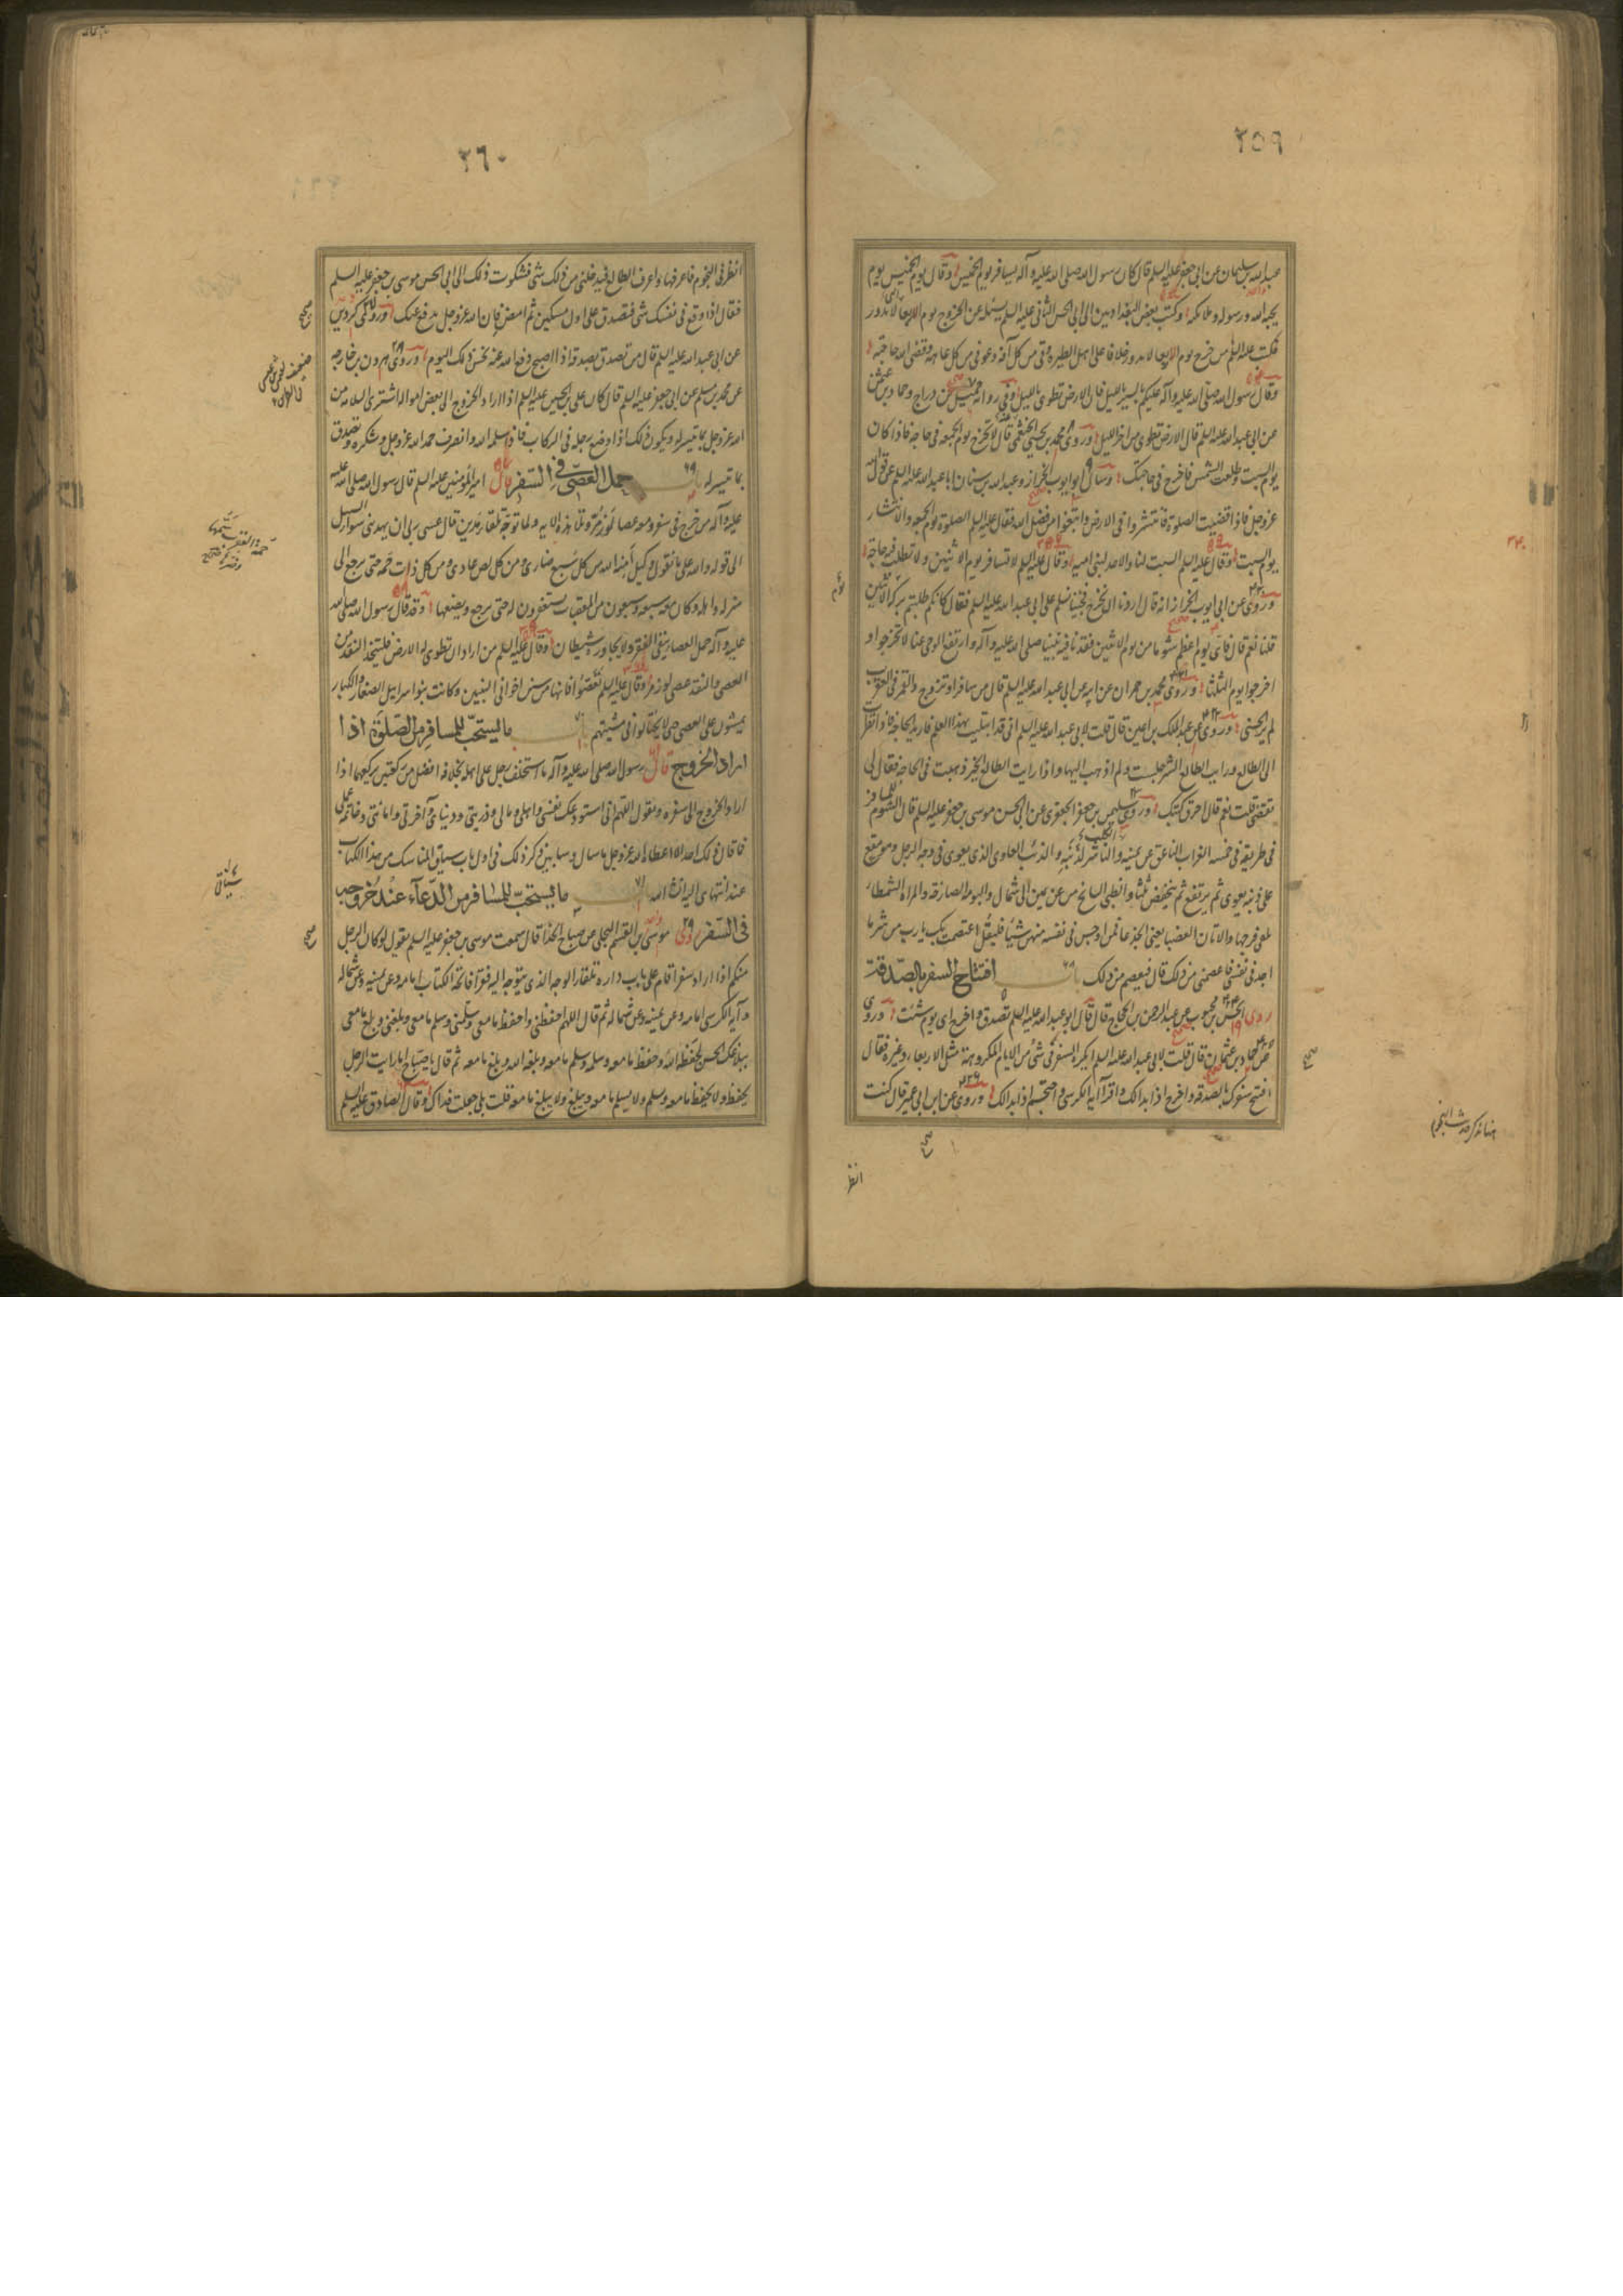 ٢٥٩
عبد الله بن سليمان عن ابي جعفر عليه السلم قال كان رسول الله صلى الله عليه وآله يسافر يوم الخميس وقال يوم الخميس يوم
يحبه الله ورسوله وملائكته وكتب بعض البغداديين الى ابي الحسن الثاني عليه السلم يسئله عن الخروج يوم الاربعا لا يدور
فكتب عليه السلم من خرج يوم الاربعا لا يدور خلافا على اهل الطيرة وقي من كل آفة وعوفي من كل عاهة وقضى الله حاجته
وقال رسول الله صلى الله عليه وآله عليكم بالسير بالليل فان الارض تطوى بالليل وفي رواية جميل بن دراج وحماد بن عثمن
عن ابي عبد الله عليه السلم قال الارض تطوى من آخر الليل وروى محمد بن يحيى الخثعمي قال لا تخرج يوم الجمعة في حاجة فاذا كان
يوم السبت وطلعت الشمس فاخرج في حاجتك وسأل ابو ايوب الخزاز وعبد الله بن سنان ابا عبد الله عليه السلم عن قول الله
عز وجل فاذا قضيت الصلوة فانتشروا في الارض وابتغوا من فضل الله فقال عليه السلم الصلوة يوم الجمعة والانتشار
يوم السبت وقال عليه السلم السبت لنا والاحد لبني امية وقال عليه السلم لا تسافر يوم الاثنين ولا تطلب فيه حاجة
وروى عن ابي ايوب الخزاز انه قال اردنا ان نخرج فجئنا نسلم على ابي عبد الله عليه السلم فقال كانكم طلبتم بركة الاثنين
قلنا نعم قال فاي يوم اعظم شوما من يوم الاثنين فقدنا فيه نبينا صلى الله عليه وآله وارتفع الوحي عنا لا تخرجوا و
اخرجوا يوم الثلثا وروى محمد بن حمران عن ابيه عن ابي عبد الله عليه السلم قال من سافر او تزوج والقمر في العقرب
لم ير الحسنى وروى عن عبد الملك بن اعين قال قلت لابي عبد الله عليه السلم اني قد ابتليت بهذا العلم فاريد الحاجة فاذا نظرت
الى الطالع ورايت الطالع الشر جلست ولم اذهب اليها واذا رايت الطالع الخير ذهبت في الحاجة فقال لي
تقضي قلت نعم قال احرق كتبك وروى سليمن بن جعفر الجعفري عن ابي الحسن موسى بن جعفر عليه السلم قال الشوم للمسافر
في طريقه في خمسة الغراب الناعق عن يمينه والناشر لذنبه والذئب العاوي الذي يعوي في وجه الرجل وهو مقع
على ذنبه يعوي ثم يرتفع ثم ينخفض ثلثا والظبي السانح من عن يمين الى شمال والبومة الصارخة والمراة الشمطاء
تلقى فرجها والاتان العضبا يعني الجدعا فمن اوجس في نفسه منهن شيئا فليقل اعتصمت بك يا رب من شر ما
اجد في نفسي فاعصمني من ذلك قال فيعصم من ذلك باب افتتاح السفر بالصدقة
روى الحسن بن محبوب عن عبد الرحمن بن الحجاج قال قال ابو عبد الله عليه السلم تصدق واخرج اي يوم شئت وروى
عن حماد بن عثمان قال قلت لابي عبد الله عليه السلم ايكره السفر في شئ من الايام المكروهة مثل الاربعاء وغيره فقال
افتتح سفرك بالصدقة واخرج اذا بدا لك واقرا آية الكرسي واحتجم اذا بدا لك وروى عن ابن ابي عمير قال كنت
انظر
٢٦٠
انظر في النجوم فاعرفها واعرف الطالع فيدخلني من ذلك شئ فشكوت ذلك الى ابي الحسن موسى بن جعفر عليه السلم
فقال اذا وقع في نفسك شئ فتصدق على اول مسكين ثم امض فان الله عز وجل يدفع عنك وروى كردين
عن ابي عبد الله عليه السلم قال من تصدق بصدقة اذا اصبح دفع الله عنه نحس ذلك اليوم وروى هرون بن خارجه
عن محمد بن مسلم عن ابي جعفر عليه السلم قال كان علي بن الحسين عليه السلم اذا اراد الخروج الى بعض امواله اشترى السلامة من
الله عز وجل بما تيسر له ويكون ذلك اذا وضع رجله في الركاب فاذا سلمه الله وانصرف حمد الله عز وجل وشكره وتصدق
بما تيسر له باب حمل العصى في السفر قال امير المؤمنين عليه السلم قال رسول الله صلى الله عليه
عليه وآله من خرج في سفر ومعه عصا لوز مر وتلا هذه الاية ولما توجه تلقاء مدين قال عسى ربي ان يهديني سواء السبيل
الى قوله والله على ما نقول وكيل آمنه الله من كل سبع ضاري ومن كل لص عادي ومن كل ذات حمة حتى يرجع الى
منزله واهله وكان معه سبعة وسبعون من المعقبات يستغفرون له حتى يرجع ويضعها وقد قال رسول الله صلى الله
عليه وآله حمل العصا ينفي الفقر ولا يجاوره شيطان وقال عليه السلم من اراد ان تطوى له الارض فليتخذ النقد من
العصى والنقد عصى لوز مر وقال عليه السلم تعصوا فانها من سنن اخواني النبيين وكانت بنوا اسرايل الصغار والكبار
يمشون على العصى حتى لا يختالوا في مشيتهم باب ما يستحب للمسافر من الصلوة اذا
اراد الخروج قال رسول الله صلى الله عليه وآله ما استخلف رجل على اهله بخلافة افضل من ركعتين يركعهما اذا
اراد الخروج الى سفره ويقول اللهم اني استودعك نفسي واهلي ومالي وذريتي ودنياي وآخرتي وامانتي وخاتمة عملي
فما قال ذلك احد الا اعطاه الله عز وجل ما سال وسابين ذكر ذلك في اول باب سياق المناسك من هذا الكتاب
عند انتهاي اليه ان شاء الله باب ما يستحب للمسافر من الدعآء عند خروجه
في السفر روى موسى بن القسم البجلي عن صباح الحذا قال سمعت موسى بن جعفر عليه السلم يقول لو كان الرجل
منكم اذا اراد سفرا قام على باب داره تلقاء الوجه الذي يتوجه اليه فقرا فاتحة الكتاب امامه وعن يمينه وعن شماله
وآية الكرسي امامه وعن يمينه وعن شماله ثم قال اللهم احفظني واحفظ ما معي وسلمني وسلم ما معي وبلغني وبلغ ما معي
ببلاغك الحسن لحفظه الله وحفظ ما معه وسلمه وسلم ما معه وبلغه الله وبلغ ما معه ثم قال يا صباح اما رايت الرجل
يحفظ ولا يحفظ ما معه ويسلم ولا يسلم ما معه ويبلغ ولا يبلغ ما معه قلت بلى جعلت فداك وقال الصادق عليه السلم